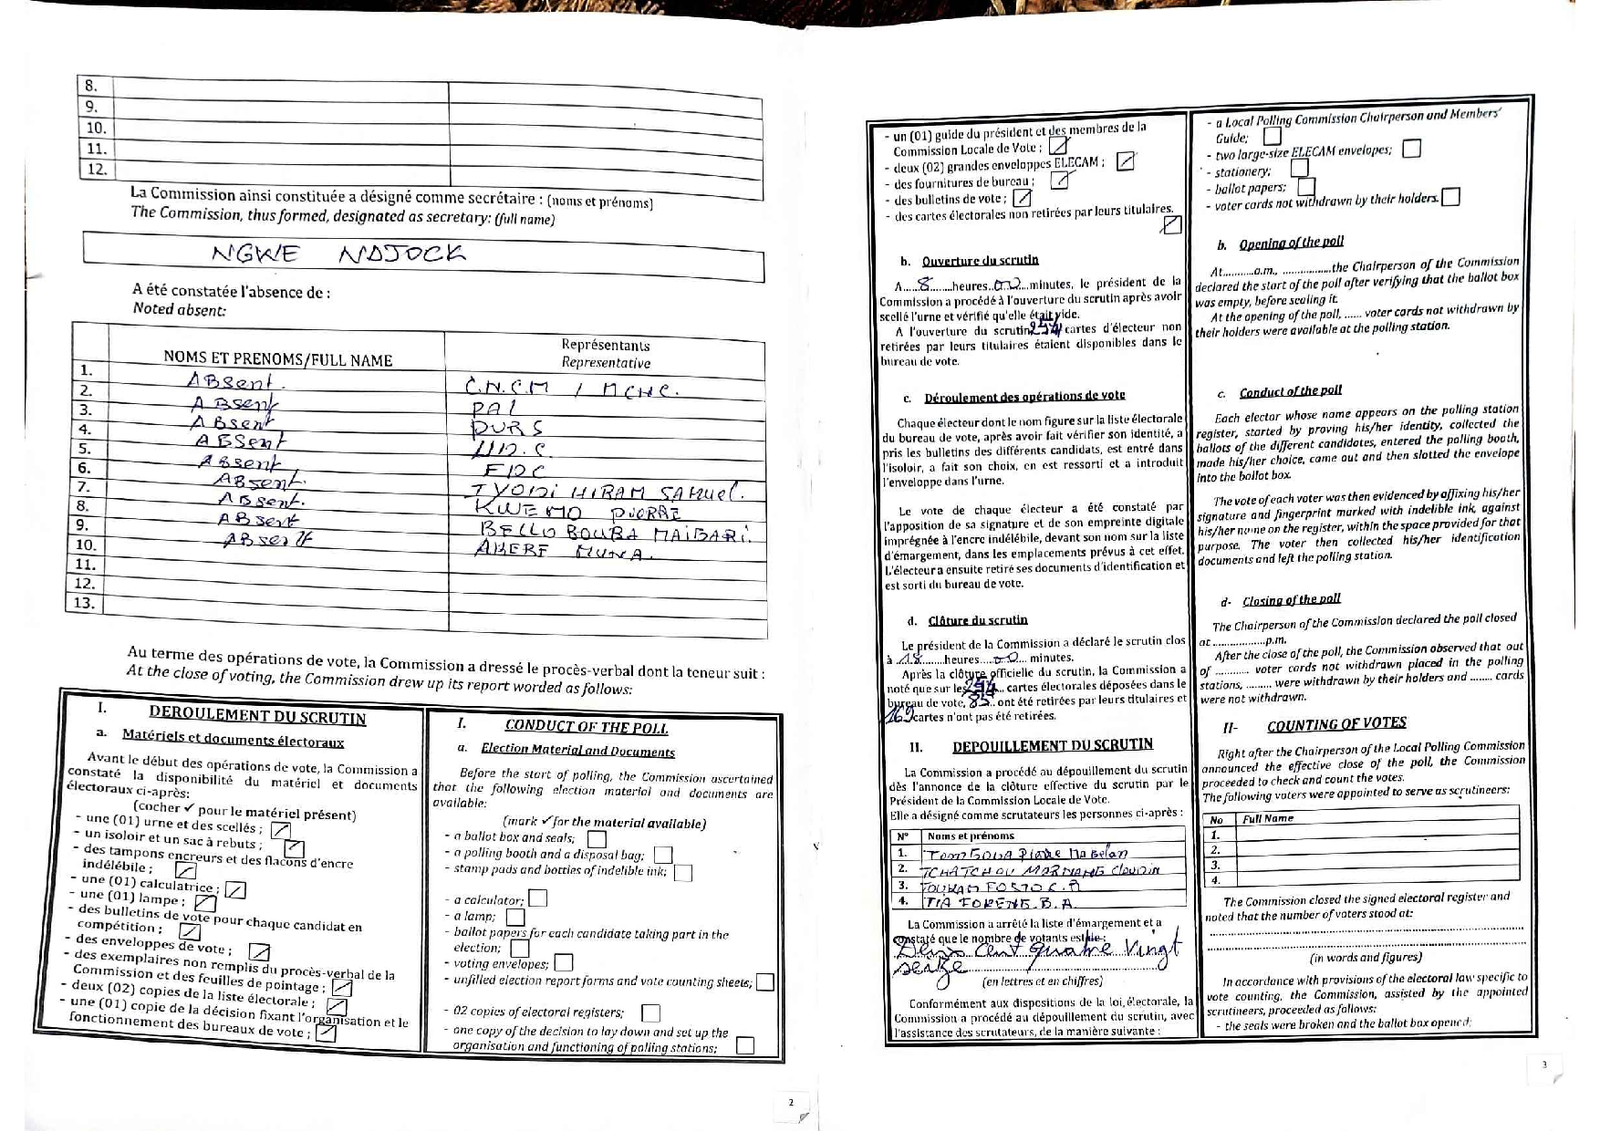 8.
9.
10.
11.
12.
La Commission ainsi constituée a désigné comme secrétaire : (noms et prénoms)
The Commission, thus formed, designated as secretary: (full name)
NGWE NDJOCK
A été constatée l'absence de :
Noted absent:
NOMS ET PRENOMS/FULL NAME
Représentants
Representative
1.
2. ABsent. C.N.C.M / MCNC.
3. ABsent PAL
4. ABsent PURS
5. ABSent U.D.C.
6. ABsent FDC
7. ABsent. IYODI HIRAM SAMUEL.
8. ABsent. KWEMO PIERRE
9. ABsent BELLO BOUBA MAIGARI.
10. ABsent AKERE MUNA.
11.
12.
13.
Au terme des opérations de vote, la Commission a dressé le procès-verbal dont la teneur suit :
At the close of voting, the Commission drew up its report worded as follows:
I. DEROULEMENT DU SCRUTIN
a. Matériels et documents électoraux
Avant le début des opérations de vote, la Commission a
constaté la disponibilité du matériel et documents
électoraux ci-après:
(cocher ✓ pour le matériel présent)
- une (01) urne et des scellés ;
- un isoloir et un sac à rebuts ;
- des tampons encreurs et des flacons d'encre
indélébile ;
- une (01) calculatrice ;
- une (01) lampe ;
- des bulletins de vote pour chaque candidat en
compétition ;
- des enveloppes de vote ;
- des exemplaires non remplis du procès-verbal de la
Commission et des feuilles de pointage ;
- deux (02) copies de la liste électorale ;
- une (01) copie de la décision fixant l'organisation et le
fonctionnement des bureaux de vote ;
I. CONDUCT OF THE POLL
a. Election Material and Documents
Before the start of polling, the Commission ascertained
that the following election material and documents are
available:
(mark ✓ for the material available)
- a ballot box and seals;
- a polling booth and a disposal bag;
- stamp pads and bottles of indelible ink;
- a calculator;
- a lamp;
- ballot papers for each candidate taking part in the
election;
- voting envelopes;
- unfilled election report forms and vote counting sheets;
- 02 copies of electoral registers;
- one copy of the decision to lay down and set up the
organisation and functioning of polling stations;
2
- un (01) guide du président et des membres de la
Commission Locale de Vote ;
- deux (02) grandes enveloppes ELECAM ;
- des fournitures de bureau ;
- des bulletins de vote ;
- des cartes électorales non retirées par leurs titulaires.
b. Ouverture du scrutin
A....8.....heures..00...minutes, le président de la
Commission a procédé à l'ouverture du scrutin après avoir
scellé l'urne et vérifié qu'elle était vide.
A l'ouverture du scrutin 254 cartes d'électeur non
retirées par leurs titulaires étaient disponibles dans le
bureau de vote.
c. Déroulement des opérations de vote
Chaque électeur dont le nom figure sur la liste électorale
du bureau de vote, après avoir fait vérifier son identité, a
pris les bulletins des différents candidats, est entré dans
l'isoloir, a fait son choix, en est ressorti et a introduit
l'enveloppe dans l'urne.
Le vote de chaque électeur a été constaté par
l'apposition de sa signature et de son empreinte digitale
imprégnée à l'encre indélébile, devant son nom sur la liste
d'émargement, dans les emplacements prévus à cet effet.
L'électeur a ensuite retiré ses documents d'identification et
est sorti du bureau de vote.
d. Clôture du scrutin
Le président de la Commission a déclaré le scrutin clos
à .18......heures....00... minutes.
Après la clôture officielle du scrutin, la Commission a
noté que sur les 254... cartes électorales déposées dans le
bureau de vote, 85.. ont été retirées par leurs titulaires et
169 cartes n'ont pas été retirées.
II. DEPOUILLEMENT DU SCRUTIN
La Commission a procédé au dépouillement du scrutin
dès l'annonce de la clôture effective du scrutin par le
Président de la Commission Locale de Vote.
Elle a désigné comme scrutateurs les personnes ci-après :
N° Noms et prénoms
1. Pierre
2. TCHATCHOU
3. FOSTO C.A
4. TIA B.A
La Commission a arrêté la liste d'émargement et a
constaté que le nombre de votants est de :
Deux Cent quatre Vingt
seize
(en lettres et en chiffres)
Conformément aux dispositions de la loi électorale, la
Commission a procédé au dépouillement du scrutin, avec
l'assistance des scrutateurs, de la manière suivante :
- a Local Polling Commission Chairperson and Members'
Guide;
- two large-size ELECAM envelopes;
- stationery;
- ballot papers;
- voter cards not withdrawn by their holders.
b. Opening of the poll
At..........a.m., ................the Chairperson of the Commission
declared the start of the poll after verifying that the ballot box
was empty, before sealing it.
At the opening of the poll, ...... voter cards not withdrawn by
their holders were available at the polling station.
c. Conduct of the poll
Each elector whose name appears on the polling station
register, started by proving his/her identity, collected the
ballots of the different candidates, entered the polling booth,
made his/her choice, came out and then slotted the envelope
into the ballot box.
The vote of each voter was then evidenced by affixing his/her
signature and fingerprint marked with indelible ink, against
his/her name on the register, within the space provided for that
purpose. The voter then collected his/her identification
documents and left the polling station.
d- Closing of the poll
The Chairperson of the Commission declared the poll closed
at .................p.m.
After the close of the poll, the Commission observed that out
of ........... voter cards not withdrawn placed in the polling
stations, ......... were withdrawn by their holders and ........ cards
were not withdrawn.
II- COUNTING OF VOTES
Right after the Chairperson of the Local Polling Commission
announced the effective close of the poll, the Commission
proceeded to check and count the votes.
The following voters were appointed to serve as scrutineers:
No Full Name
1.
2.
3.
4.
The Commission closed the signed electoral register and
noted that the number of voters stood at:
(in words and figures)
In accordance with provisions of the electoral law specific to
vote counting, the Commission, assisted by the appointed
scrutineers, proceeded as follows:
- the seals were broken and the ballot box opened;
3